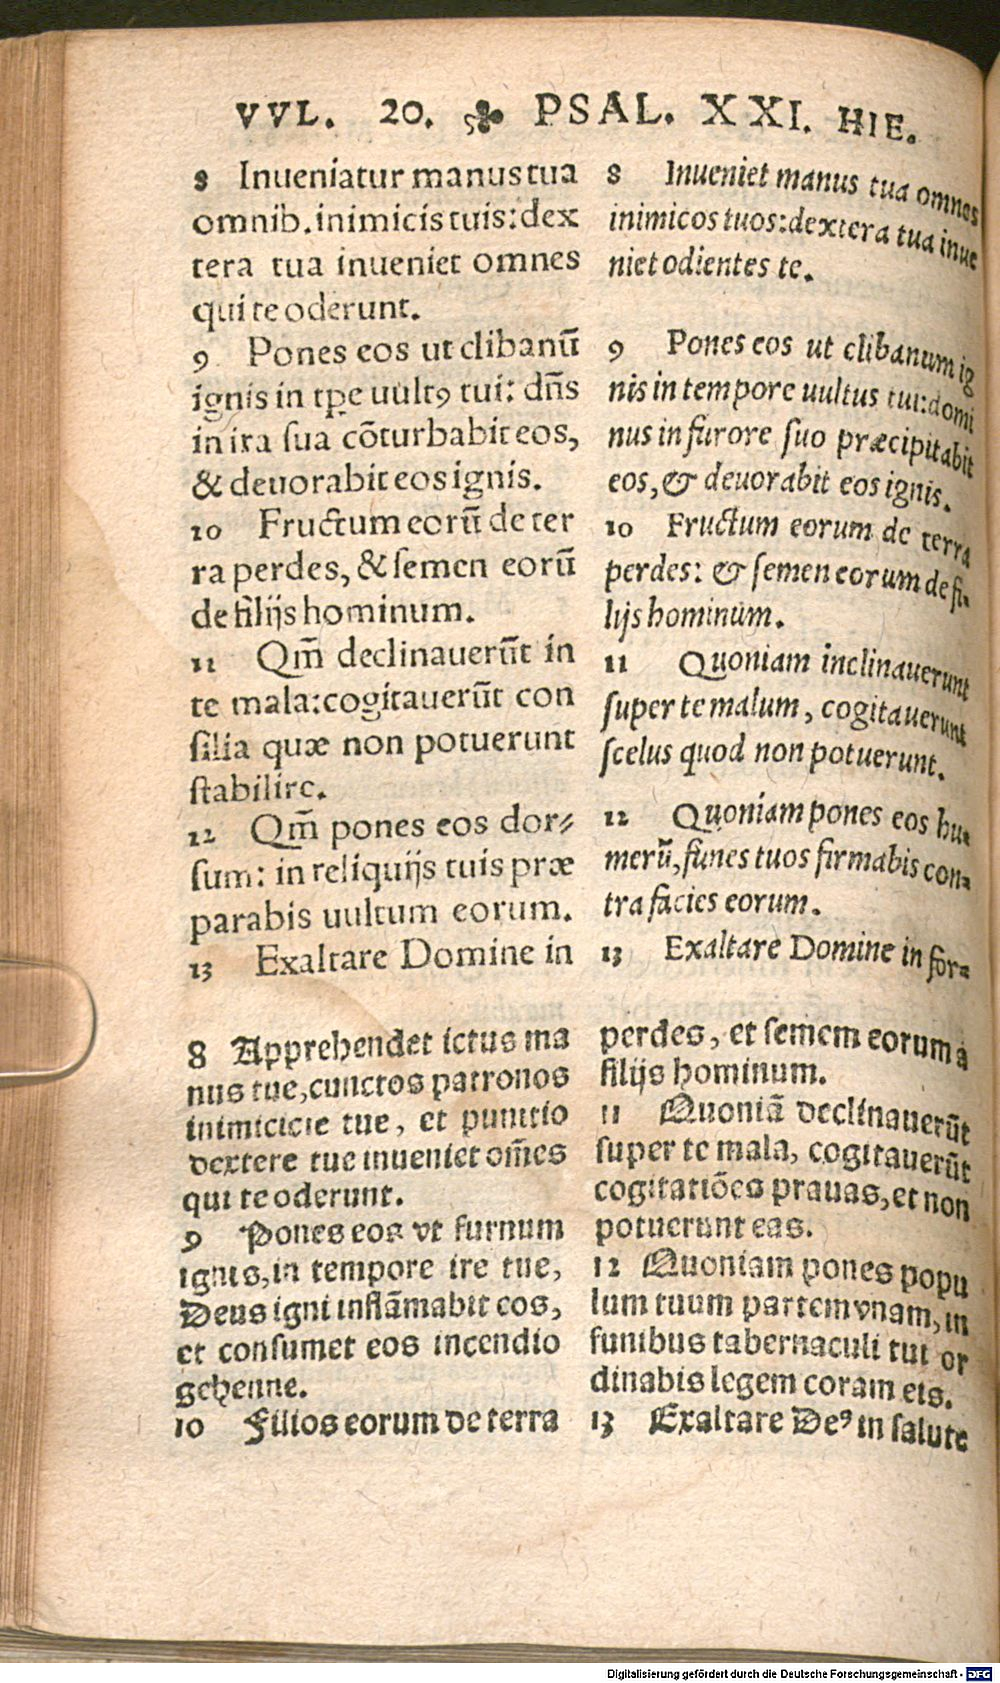 VVL. 20. ☙ PSAL. XXI. HIE.
8 Inueniatur manus tua
omnib. inimicis tuis: dex
tera tua inueniet omnes
qui te oderunt.
9 Pones eos ut clibanū
ignis in tp̄e uultꝰ tui: dn̄s
in ira sua cōturbabit eos,
& deuorabit eos ignis.
10 Fructum eorū de ter
ra perdes, & semen eorū
de filijs hominum.
11 Qm̄ declinauerūt in
te mala: cogitauerūt con
silia quæ non potuerunt
stabilire.
12 Qm̄ pones eos dor⸗
sum: in reliquijs tuis præ
parabis uultum eorum.
13 Exaltare Domine in
8 Inueniet manus tua omnes
inimicos tuos: dextera tua inue
niet odientes te.
9 Pones eos ut clibanum ig
nis in tempore uultus tui: domi
nus in furore suo præcipitabit
eos, & deuorabit eos ignis.
10 Fructum eorum de terra
perdes: & semen eorum de fi-
lijs hominum.
11 Quoniam inclinauerunt
super te malum, cogitauerunt
scelus quod non potuerunt.
12 Quoniam pones eos hu-
merū, funes tuos firmabis con-
tra facies eorum.
13 Exaltare Domine in for-
8 Apprehendet ictus ma
nus tue, cunctos patronos
inimicicie tue, et punitio
dextere tue inueniet om̄es
qui te oderunt.
9 Pones eos vt furnum
ignis, in tempore ire tue,
Deus igni inflāmabit eos,
et consumet eos incendio
gehenne.
10 Filios eorum de terra
perdes, et semem eorum a
filijs hominum.
11 Quoniā declinauerūt
super te mala, cogitauerūt
cogitatiōes prauas, et non
potuerunt eas.
12 Quoniam pones popu
lum tuum partem vnam, in
funibus tabernaculi tui or
dinabis legem coram eis.
13 Exaltare Deꝰ in salute
Digitalisierung gefördert durch die Deutsche Forschungsgemeinschaft - DFG